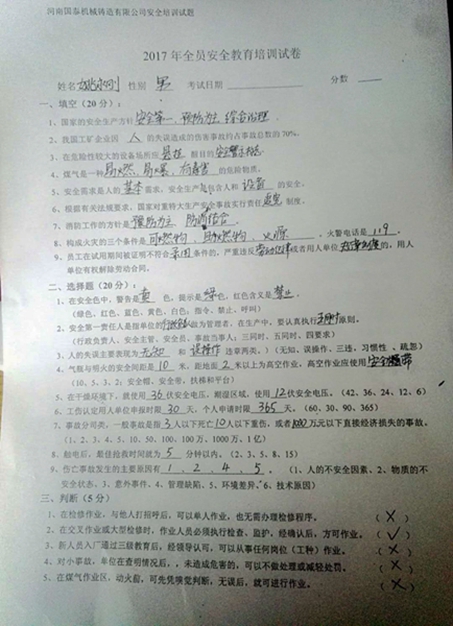 河南国泰机械铸造有限公司安全培训试题
2017 年全员安全教育培训试卷
姓名 姚永刚 性别 男 考试日期 分数
一、填空（20 分）：
1、国家的安全生产方针 安全第一，预防为主 综合治理.
2、我国工矿企业因 人 的失误造成的伤害事故约占事故总数的 70%。
3、在危险性较大的设备场所应 悬挂 醒目的 安全警示标志.
4、煤气是一种 易燃、易爆、有毒害 的危险物质。
5、安全需求是人的 基本 需求，安全生产是包含人和 设备 的安全。
6、根据有关法规要求，国家对重特大生产安全事故实行责任 追究 制度。
7、消防工作的方针是 预防为主 防消结合.
8、构成火灾的三个条件是 可燃物、助燃物、火源 。火警电话是 119 .
9、员工在试用期间被证明不符合 录用 条件的，严重违反 劳动纪律 或者用人单位 规章制度 的，用人
单位有权解除劳动合同。
二、选择题（20 分）：
1、在安全色中，警告是 黄 色，提示是 绿 色，红色含义是 禁止 .
（绿色、红色、蓝色、黄色、白色；指令、禁止、呼叫）
2、安全第一责任人是指单位的 行政负责 人为管理者，在生产中，要认真执行 三同时 原则。
（行政负责人、安全主管、安全员、事故当事人；三同时、五同时、四要求）
3、人的失误主要表现为 无知 和 误操作 违章两类。）（无知、误操作、三违、习惯性、疏忽）
4、气瓶与明火的安全间距是 10 米，距地面 2 米以上为高空作业，高空作业应使用 安全带
（10、5、3、2；安全帽、安全带、扶梯和平台）
5、在干燥环境下，就使用 36 伏安全电压，潮湿区域，使用 12 伏安全电压。（42、36、24、12、6）
6、工伤认定用人单位申报时限 30 天，个人申请时限 365 天。（60、30、90、365）
7、事故分可类，一般事故是指 3 人以下死亡 10 人以下重伤，或者 1000 万元以下直接经济损失的事故。
（1、2、3、4、5、10、50、100、100 万、1000 万、1 亿）
8、触电后，最佳抢救时间就为 5 分钟以内。（2、3、5、8、15）
9、伤亡事故发生的主要原因有 1、2、4、5 。（1、人的不安全因素、2、物质的不
安全状态、3、意外事件、4、管理缺陷、5、环境差异、6、技术原因）
三、判断（5 分）
1、在检修作业，与他人打招呼后，可以单人作业，也无需办理检修程序。（ × ）
2、在交叉作业或大型检修时，作业人员必须执行检查、监护，经确认后，方可作业。（ √ ）
3、新人员入厂通过三级教育后，经领导认可，可以从事任何岗位（工种）作业。（ × ）
4、对小事故，单位在查明情况后，，未造成危害的，可以不做处理或减轻处罚。（ × ）
5、在煤气作业区，动火前，可先凭嗅觉判断，无误后，就可进行作业。（ × ）